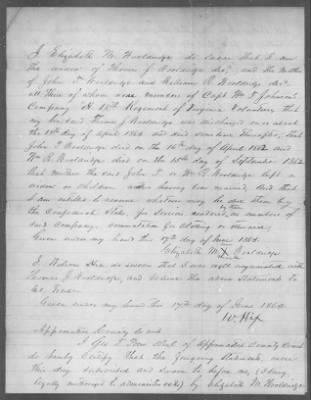 I Elizabeth M. Wooldridge do swear that I am
the widow of Thomas J Wooldridge decd, and the Mother
of John T Wooldridge and William R. Wooldridge decd.
all three of whom were members of Capt Wm T Johnson's
Company "H. 18th Regiment of Virginia Volunteers, that
my husband Thomas J Wooldridge was discharged on or about
the 18th day of April 1862 and died sometime thereafter, that
John T Wooldridge died on the 16th day of April 1862 and
Wm R. Wooldridge died on the 15th day of September 1862
that neither the said John T. or Wm R. Wooldridge left a
widow or children neither having been married, and that I
am entitled to receive whatever may be due them by
the Confederate States, for services rendered, as members of
said Company, commutation for clothing or otherwise,
Given under my hand this 17th day of June 1863.
Elizabeth M. X Wooldridge
I William Hix do swear that I was well acquainted with
Thomas J Wooldridge, and believe the above Statements to
be true.
Given under my hand this 17th day of June 1863.
W. Hix
Appomattox County to wit
I Geo T. Clerk of Appomattox County Court
do hereby Certify that the foregoing statements were
this day subscribed and sworn to before me, (I being
legally authorized to administer oaths) by Elizabeth M. Wooldridge